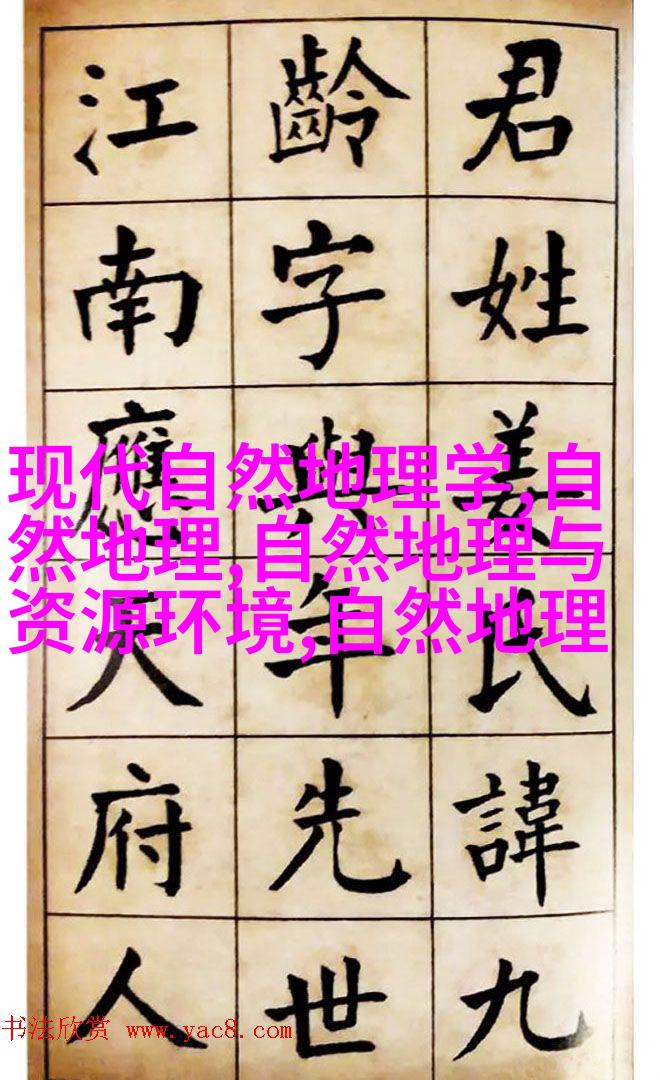 君姓姜氏諱九
齡字與年先世
江南應天府人
现代自然地理学,自
然地理,自然地理与
资源环境,自然地理
书法欣赏 www.yac8.com